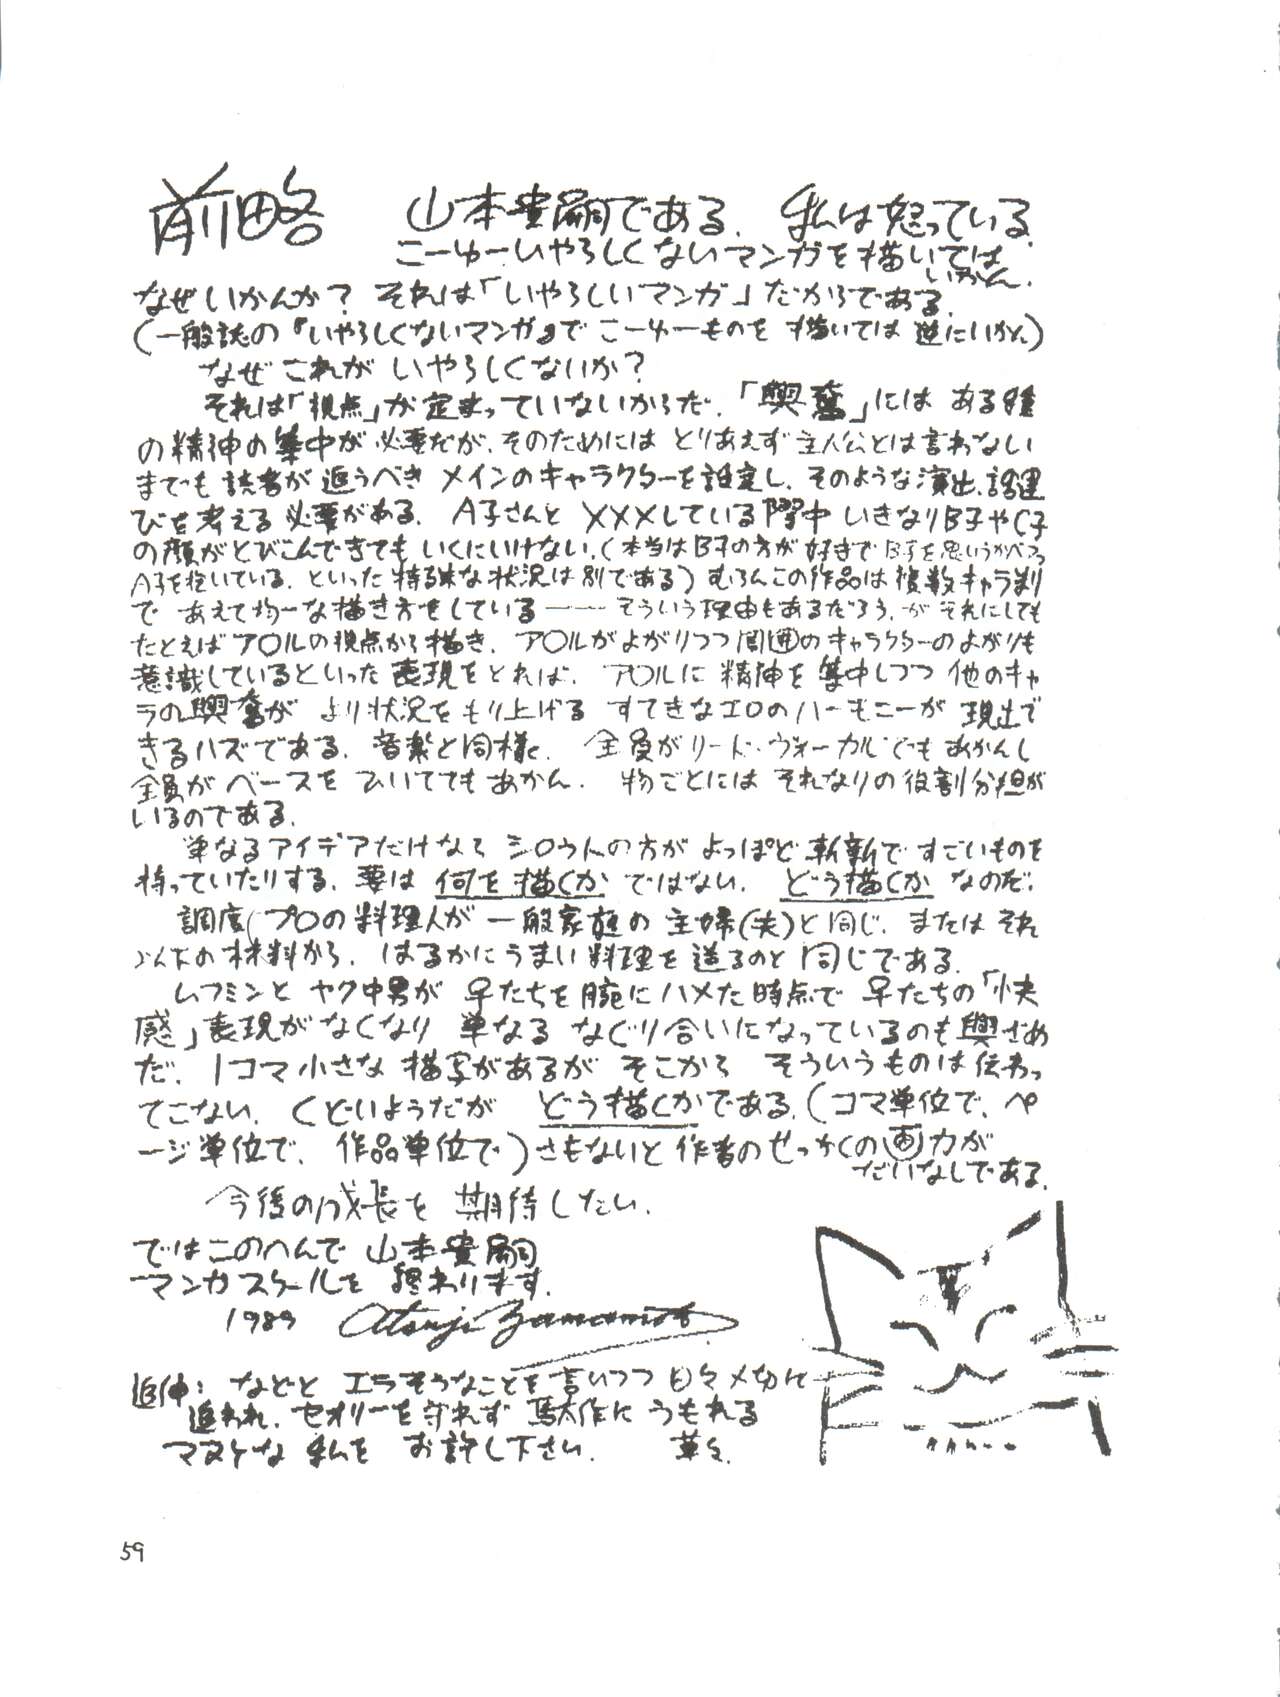 前略 山本貴嗣である. 私は怒っている.
こーゆーいやらしくないマンガを描いては
いかん.
なぜいかんか? それは「いやらしいマンガ」だからである.
(一般誌の『いやらしくないマンガ』で こーゆーものを 描いては 逆にいかん)
なぜ これが いやらしくないか?
それは「視点」が定まっていないからだ. 「興奮」には ある種
の精神の集中が必要だが、そのためには とりあえず主人公とは言わない
までも読者が追うべき メインのキャラクターを設定し、そのような演出、話運
びを考える必要がある. A子さんと XXXしている際中 いきなりB子やC子
の顔がとびこんできても いくにいけない.(本当はB子の方が好きで B子を思いうかべつつ
A子を抱いている. といった特殊な状況は別である) むろんこの作品は複数キャラ

で あえて均一な描き方をしている――そういう理由もあるだろう. が それにしても
たとえばア〇ルの視点から描き. ア〇ルがよがりつつ周囲のキャラクターのよがりも
意識しているといった 表現をとれば. ア〇ルに 精神を集中しつつ 他のキャ
ラの興奮が より状況をもり上げる すてきなエロのハーモニーが 現出で
きるハズである. 音楽と同様に. 全員がリード・ヴォーカルでもあかんし
全員が ベースを ひいててもあかん. 物ごとには それなりの役割分担が
いるのである.
単なるアイデアだけなら シロウトの方が よっぽど 斬新で すごいものを
持っていたりする. 要は 何を描くか ではない. どう描くか なのだ.
調度(プロの料理人が 一般家庭の 主婦(夫)と同じ. または それ
以下の材料から. はるかにうまい料理を造るのと同じである.
ムフミンと ヤク中男が 手たちを腕にハメた時点で 手たちの「快
感」表現がなくなり 単なる なぐり合いになっているのも興ざめ
だ. 1コマ小さな 描写があるが そこから そういうものは伝わっ
てこない. くどいようだが どう描くかである.(コマ単位で、ペ
ージ単位で、作品単位で)さもないと作者のせっかくの画力が
だいなしである.
今後の成長を 期待したい.
ではこのへんで 山本貴嗣
マンガスクールを 終わります.
1989 Atsuji Yamamoto
追伸: などと エラそうなことを言いつつ 日々〆切に
追われ. セオリーを守れず 駄作に うもれる
マヌケな 私を お許し下さい. 草々.
59